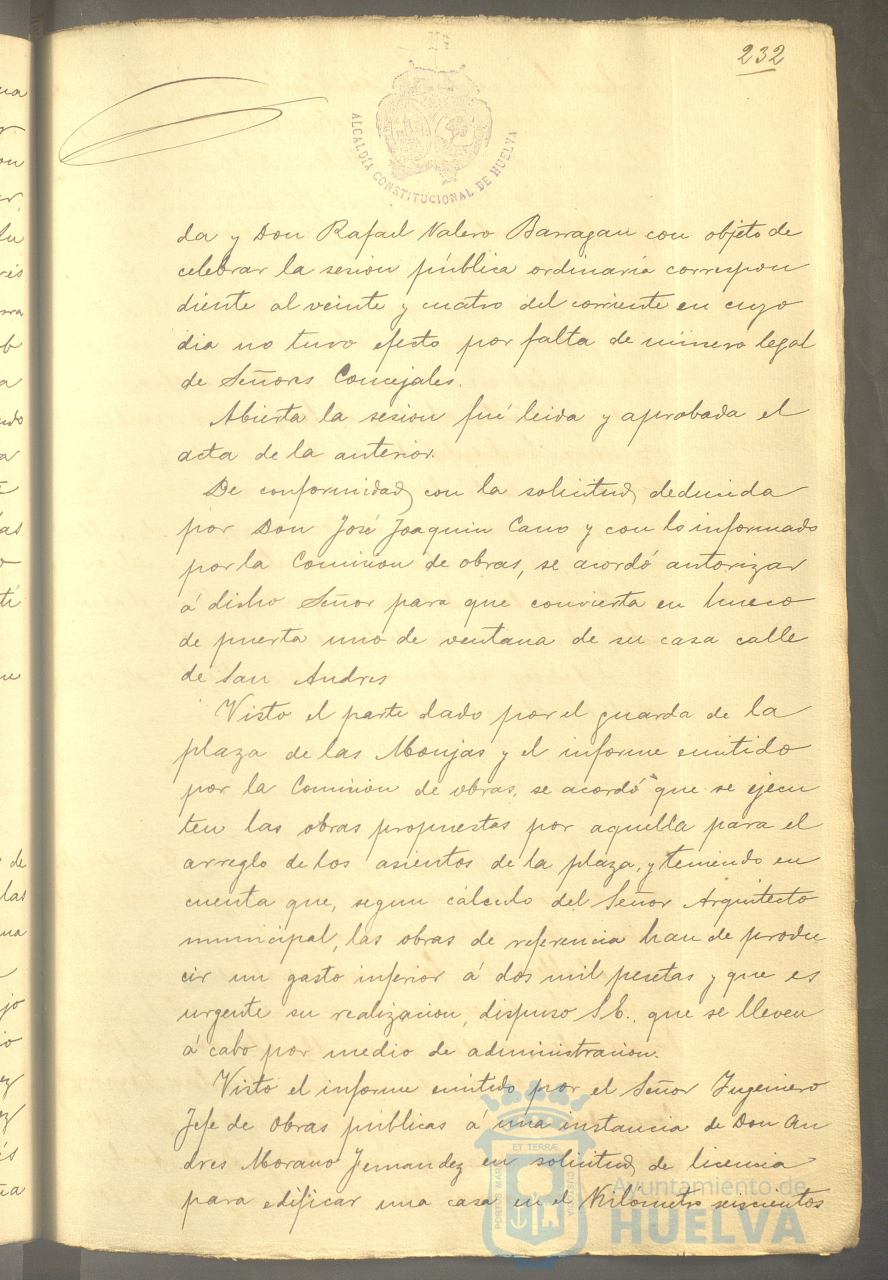 232
ALCALDÍA CONSTITUCIONAL DE HUELVA
da y Don Rafael Valero Barragan con objeto de
celebrar la sesion pública ordinaria correspon
diente al veinte y cuatro del corriente en cuyo
dia no tuvo efecto por falta de número legal
de Señores Concejales.
Abierta la sesion fué leida y aprobada el
acta de la anterior.
De conformidad con la solicitud deducida
por Don José Joaquin Cano y con lo informado
por la Comision de obras, se acordó autorizar
á dicho Señor para que convierta en hueco
de puerta uno de ventana de su casa calle
de San Andres
Visto el parte dado por el guarda de la
plaza de las Monjas y el informe emitido
por la Comision de obras, se acordó que se ejecu
ten las obras propuestas por aquella para el
arreglo de los asientos de la plaza, y teniendo en
cuenta que, segun cálculo del Señor Arquitecto
municipal, las obras de referencia han de produ
cir un gasto inferior á dos mil pesetas y que es
urgente su realizacion, dispuso S.E., que se lleven
á cabo por medio de administracion.
Visto el informe emitido por el Señor Ingeniero
Jefe de Obras públicas á una instancia de Don An
dres Morano Fernandez en solicitud de licencia
para edificar una casa en el Kilometro seiscientos
PORTUS MARIS ET TERRÆ CUSTODIA
Ayuntamiento de
HUELVA